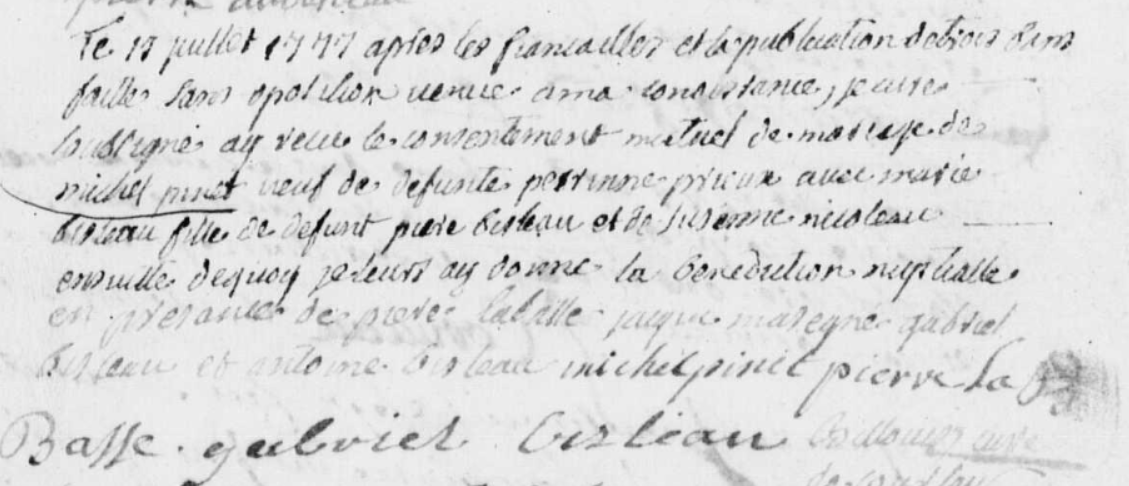 Le 17 juillet 1777 apres les fiancailles et la publication de trois bans
faittes sans oposition venue a ma conoissance, je cure
soubsigné ay receu le consentement mutuel de mariage de
michel pinet veuf de defunte perrinne prieux avec marie
bisleau fille de defunt piere bisleau et de susenne nicoleau
ensuitte dequoy je leurs ay donne la benediction nuptialle
en presance de piere labasse jacque masegne gabriel
bisleau et antoine bisleau michel pinet pierre La
Basse gabriel bisleau cure
de